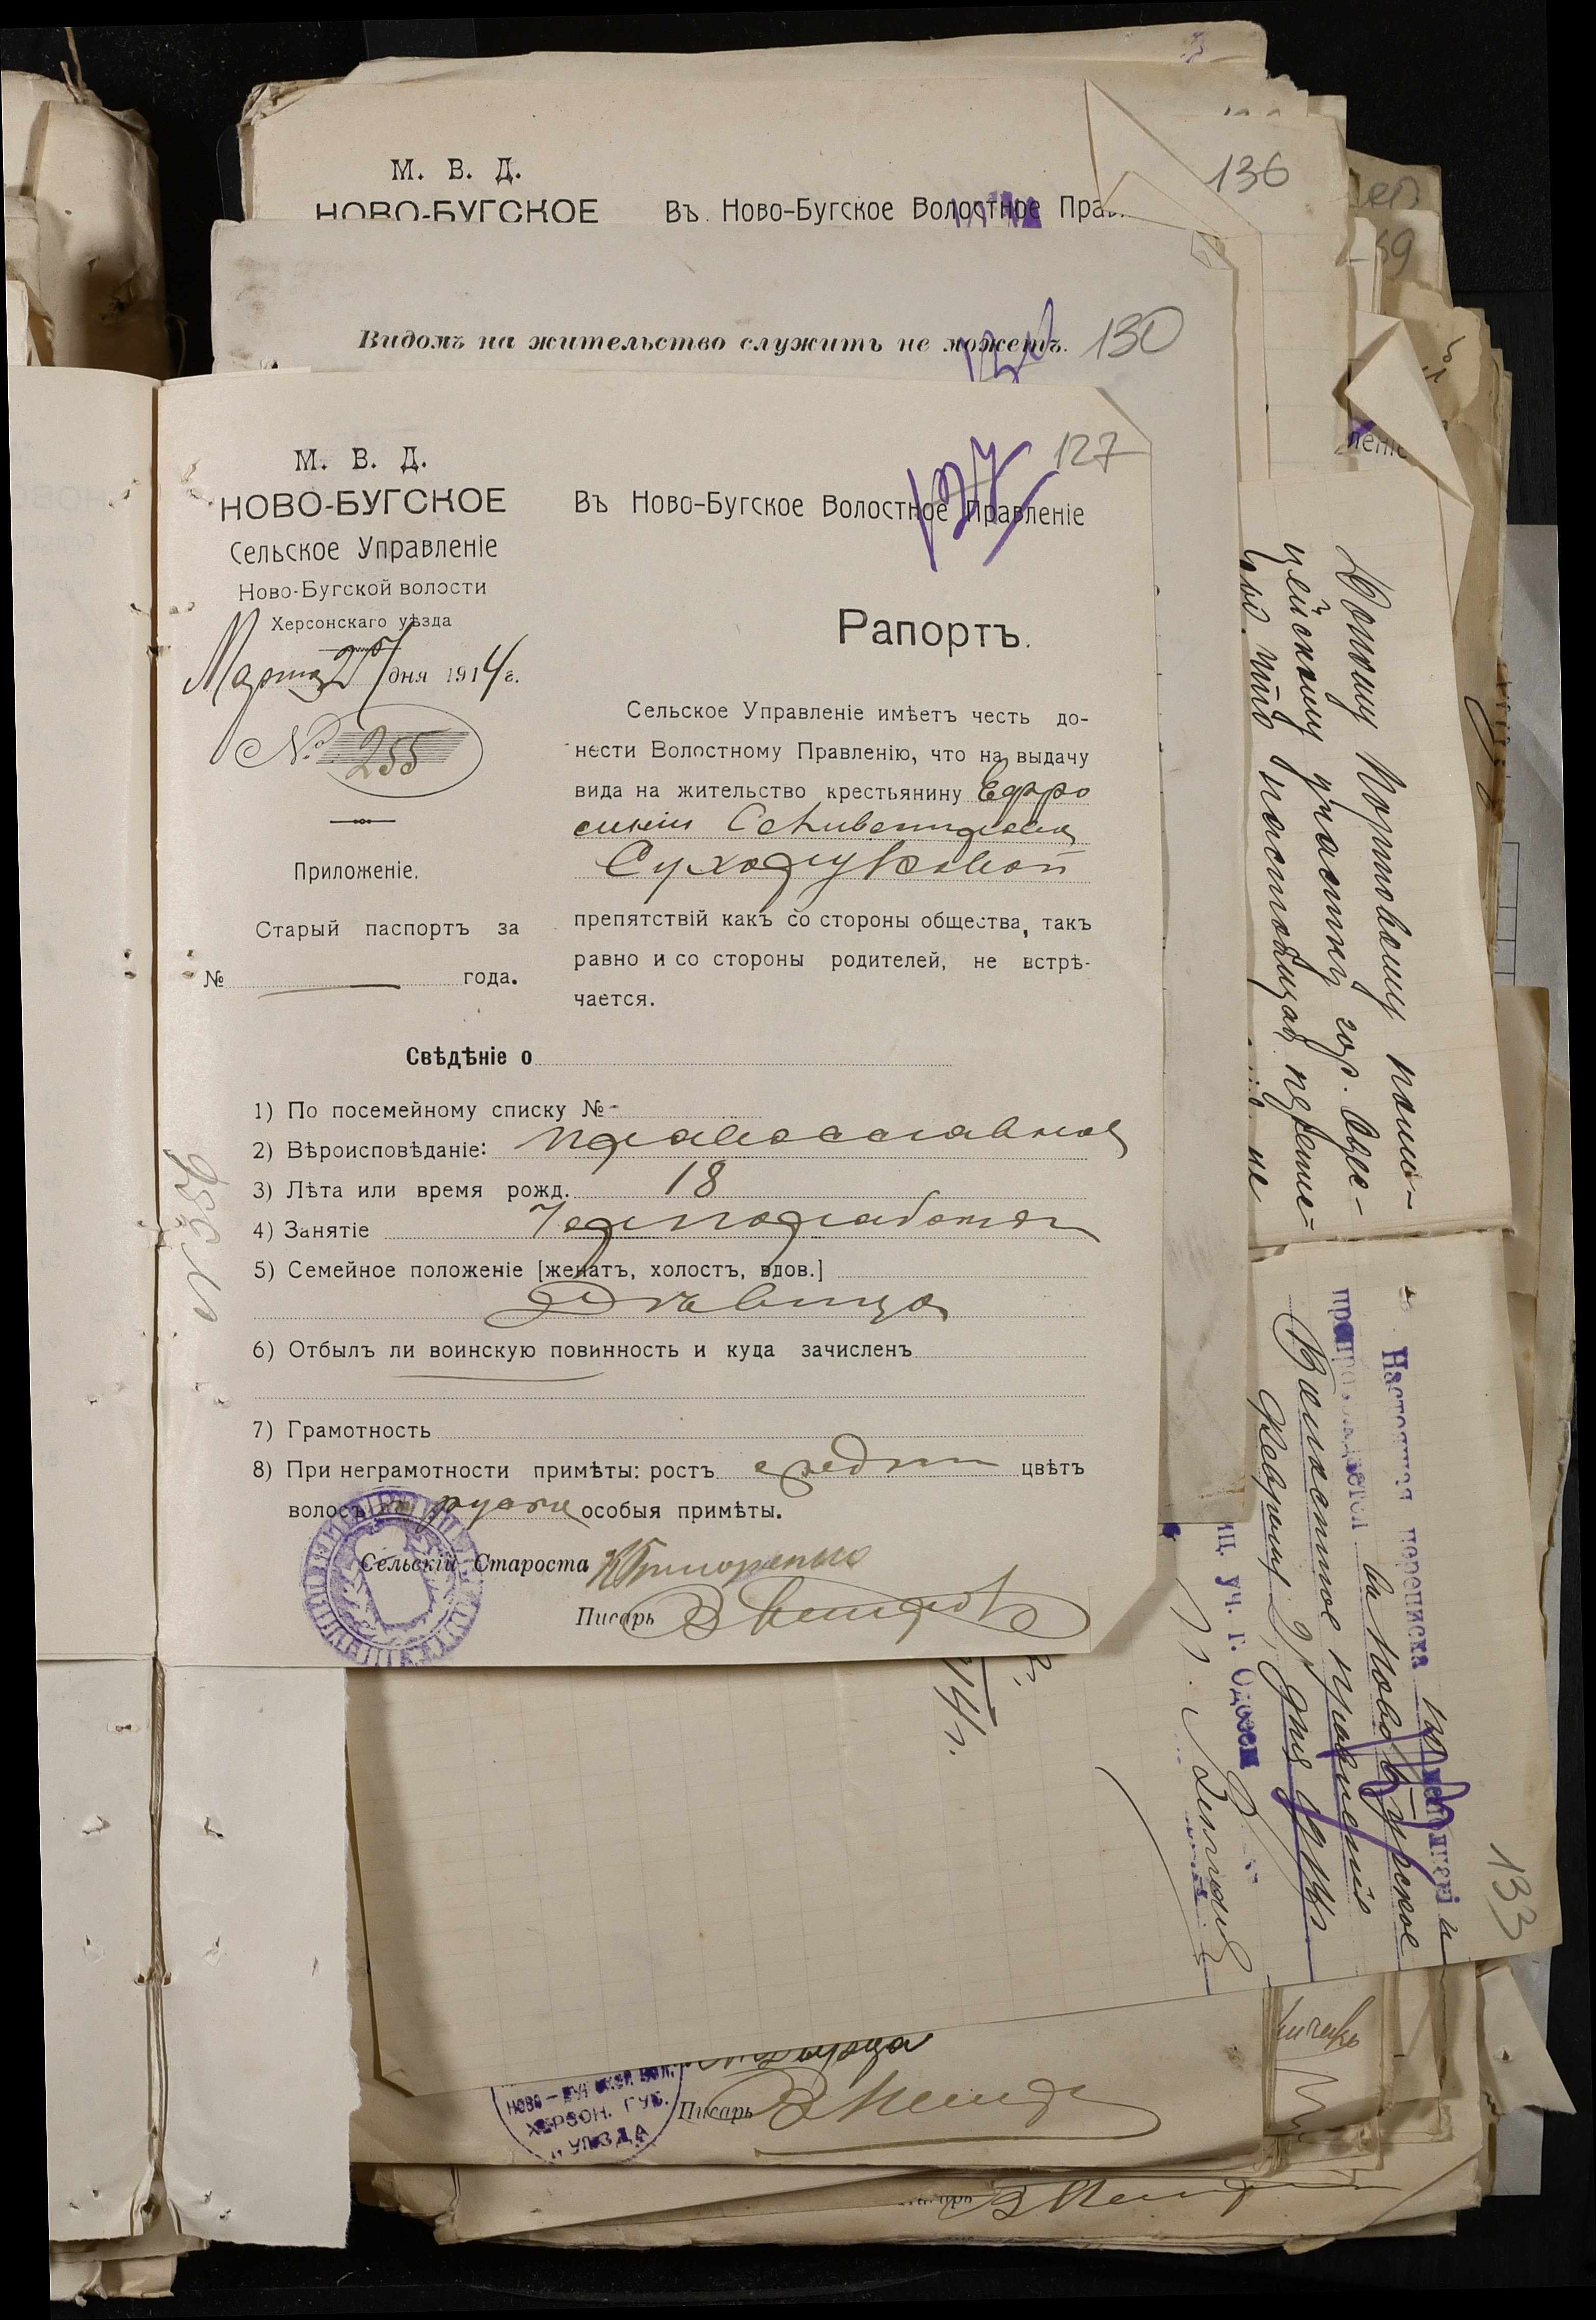 136
М. В. Д.
НОВО-БУГСКОЕ
Въ Ново-Бугское Волостное Прав
Видомъ на жительство служить не можетъ.
130
127
М. В. Д.
НОВО-БУГСКОЕ
Сельское Управленіе
Ново-Бугской волости
Херсонскаго уѣзда
Марта 27 дня 1914 г.
№ 255
Приложеніе.
Старый паспортъ за
№ года.
127
Въ Ново-Бугское Волостное Правленіе
Рапортъ.
Сельское Управленіе имѣетъ честь до-
нести Волостному Правленію, что на выдачу
вида на жительство крестьянину Ефро
синіи Селивестровой
Сухоруковой
препятствій какъ со стороны общества, такъ
равно и со стороны родителей, не встрѣ-
чается.
Свѣдѣніе о
1) По посемейному списку № -
2) Вѣроисповѣданіе: православное
3) Лѣта или время рожд. 18
4) Занятіе чернорабочая
5) Семейное положеніе [женатъ, холостъ, вдов.]
Дѣвица
6) Отбылъ ли воинскую повинность и куда зачисленъ
7) Грамотность
8) При неграмотности примѣты: ростъ средній цвѣтъ
волосъ русые особыя примѣты.
Сельскій Староста
Писарь
Доношу Портовому поли-
цейскому участку гор. Одес-
сы, что настоящая
не
133
Настоящая переписка
препровождается въ Ново Бугское
Волостное правленіе
Февраля дня 1914 г.
уч. г. Одессы
14 г.
НОВО-БУГСКОЙ ВОЛ.
ХЕРСОН. ГУБ.
УѢЗДА
Писарь